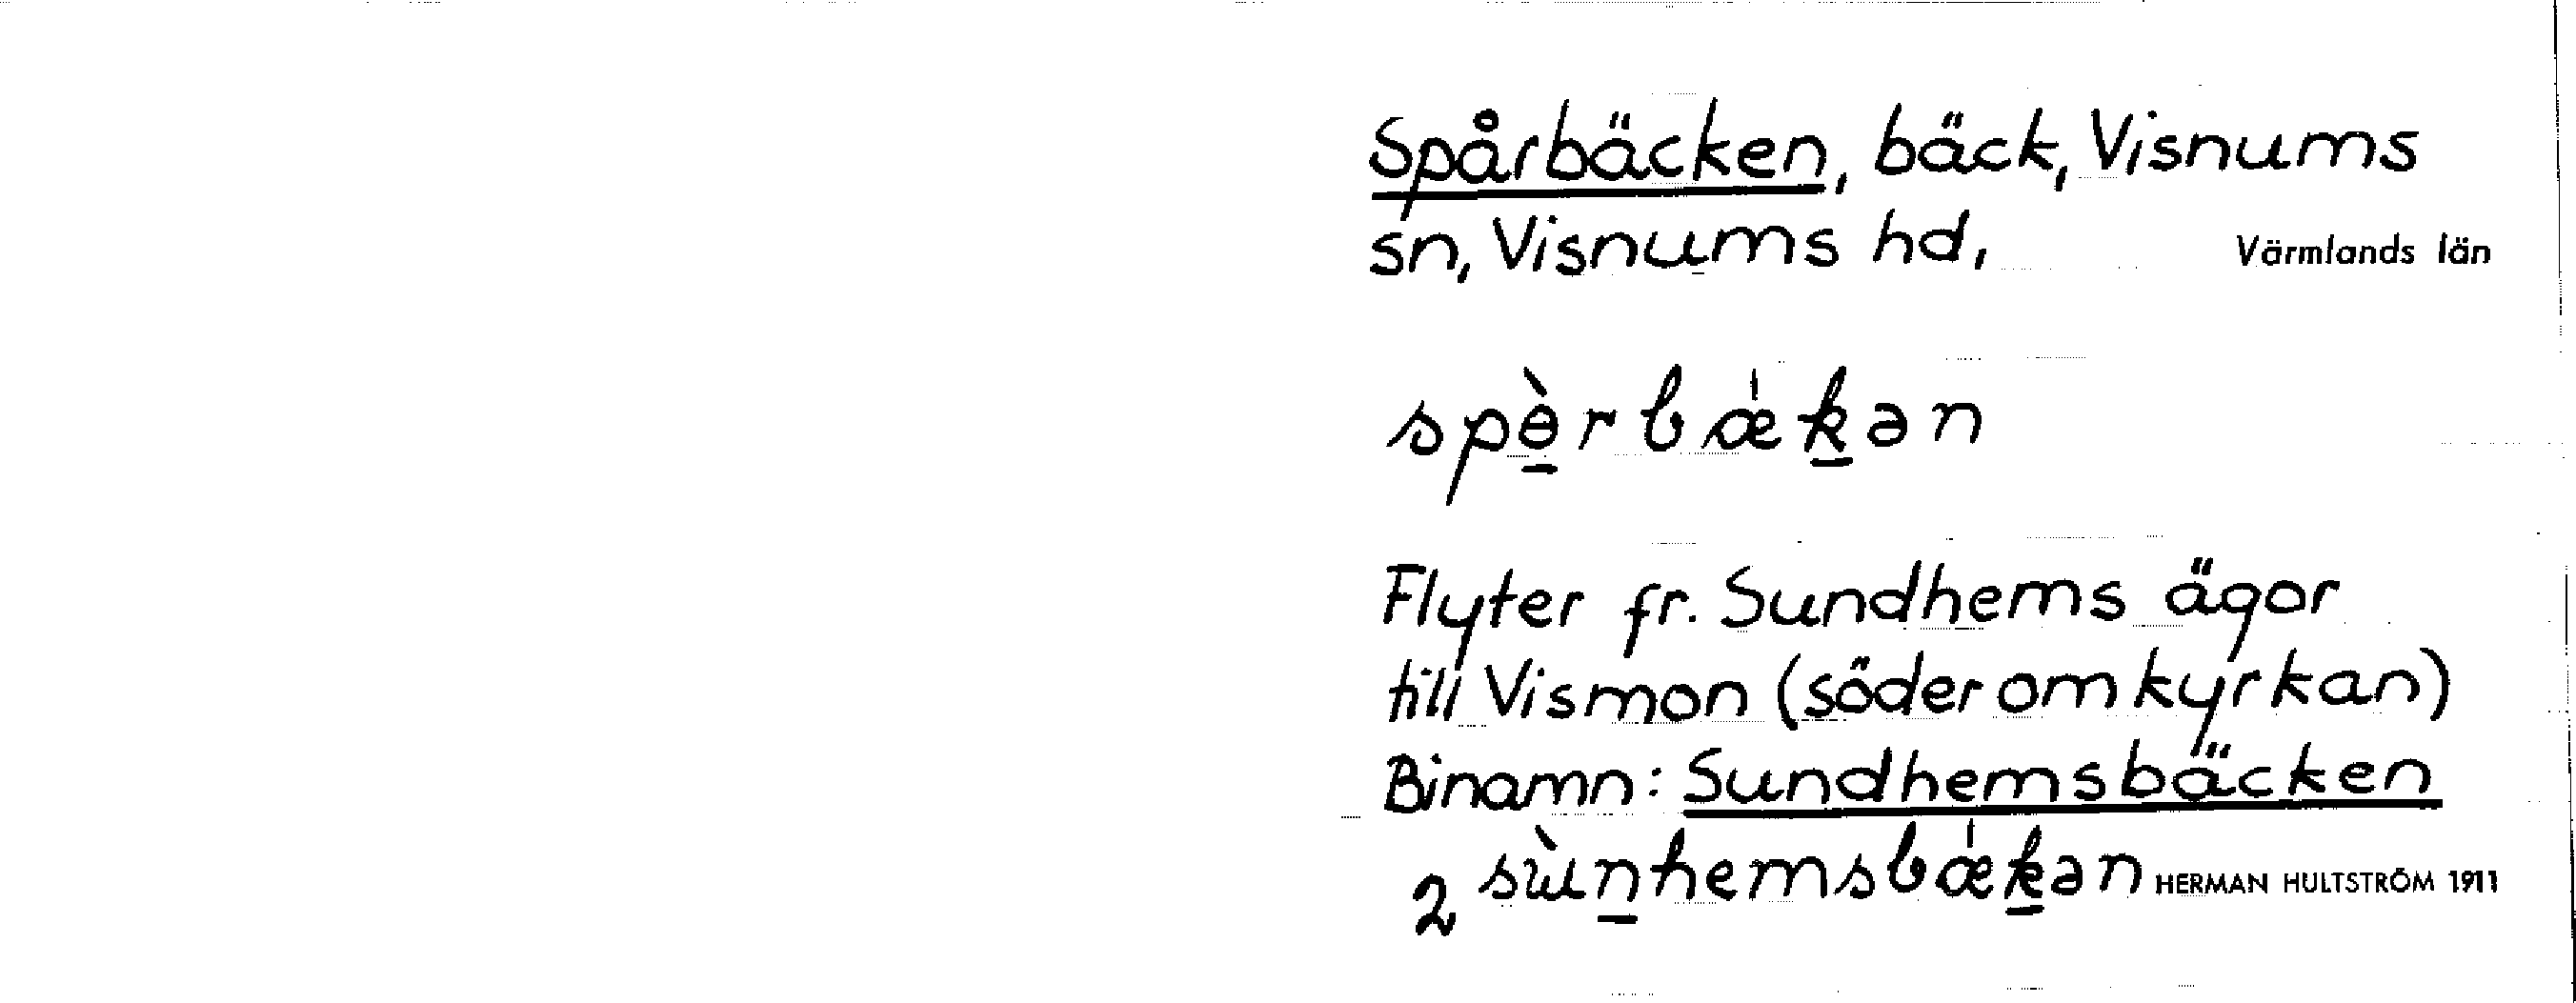 Spårbäcken, bäck, Visnums
sn, Visnums hd, Värmlands län
spɵ̠̀rbǽk̠ən
Flyter fr. Sundhems ägor
till Vismon (söder om kyrkan)
Binamn: Sundhemsbäcken
2 sɯ̀n̠hemsbǽk̠ən HERMAN HULTSTRÖM 1911